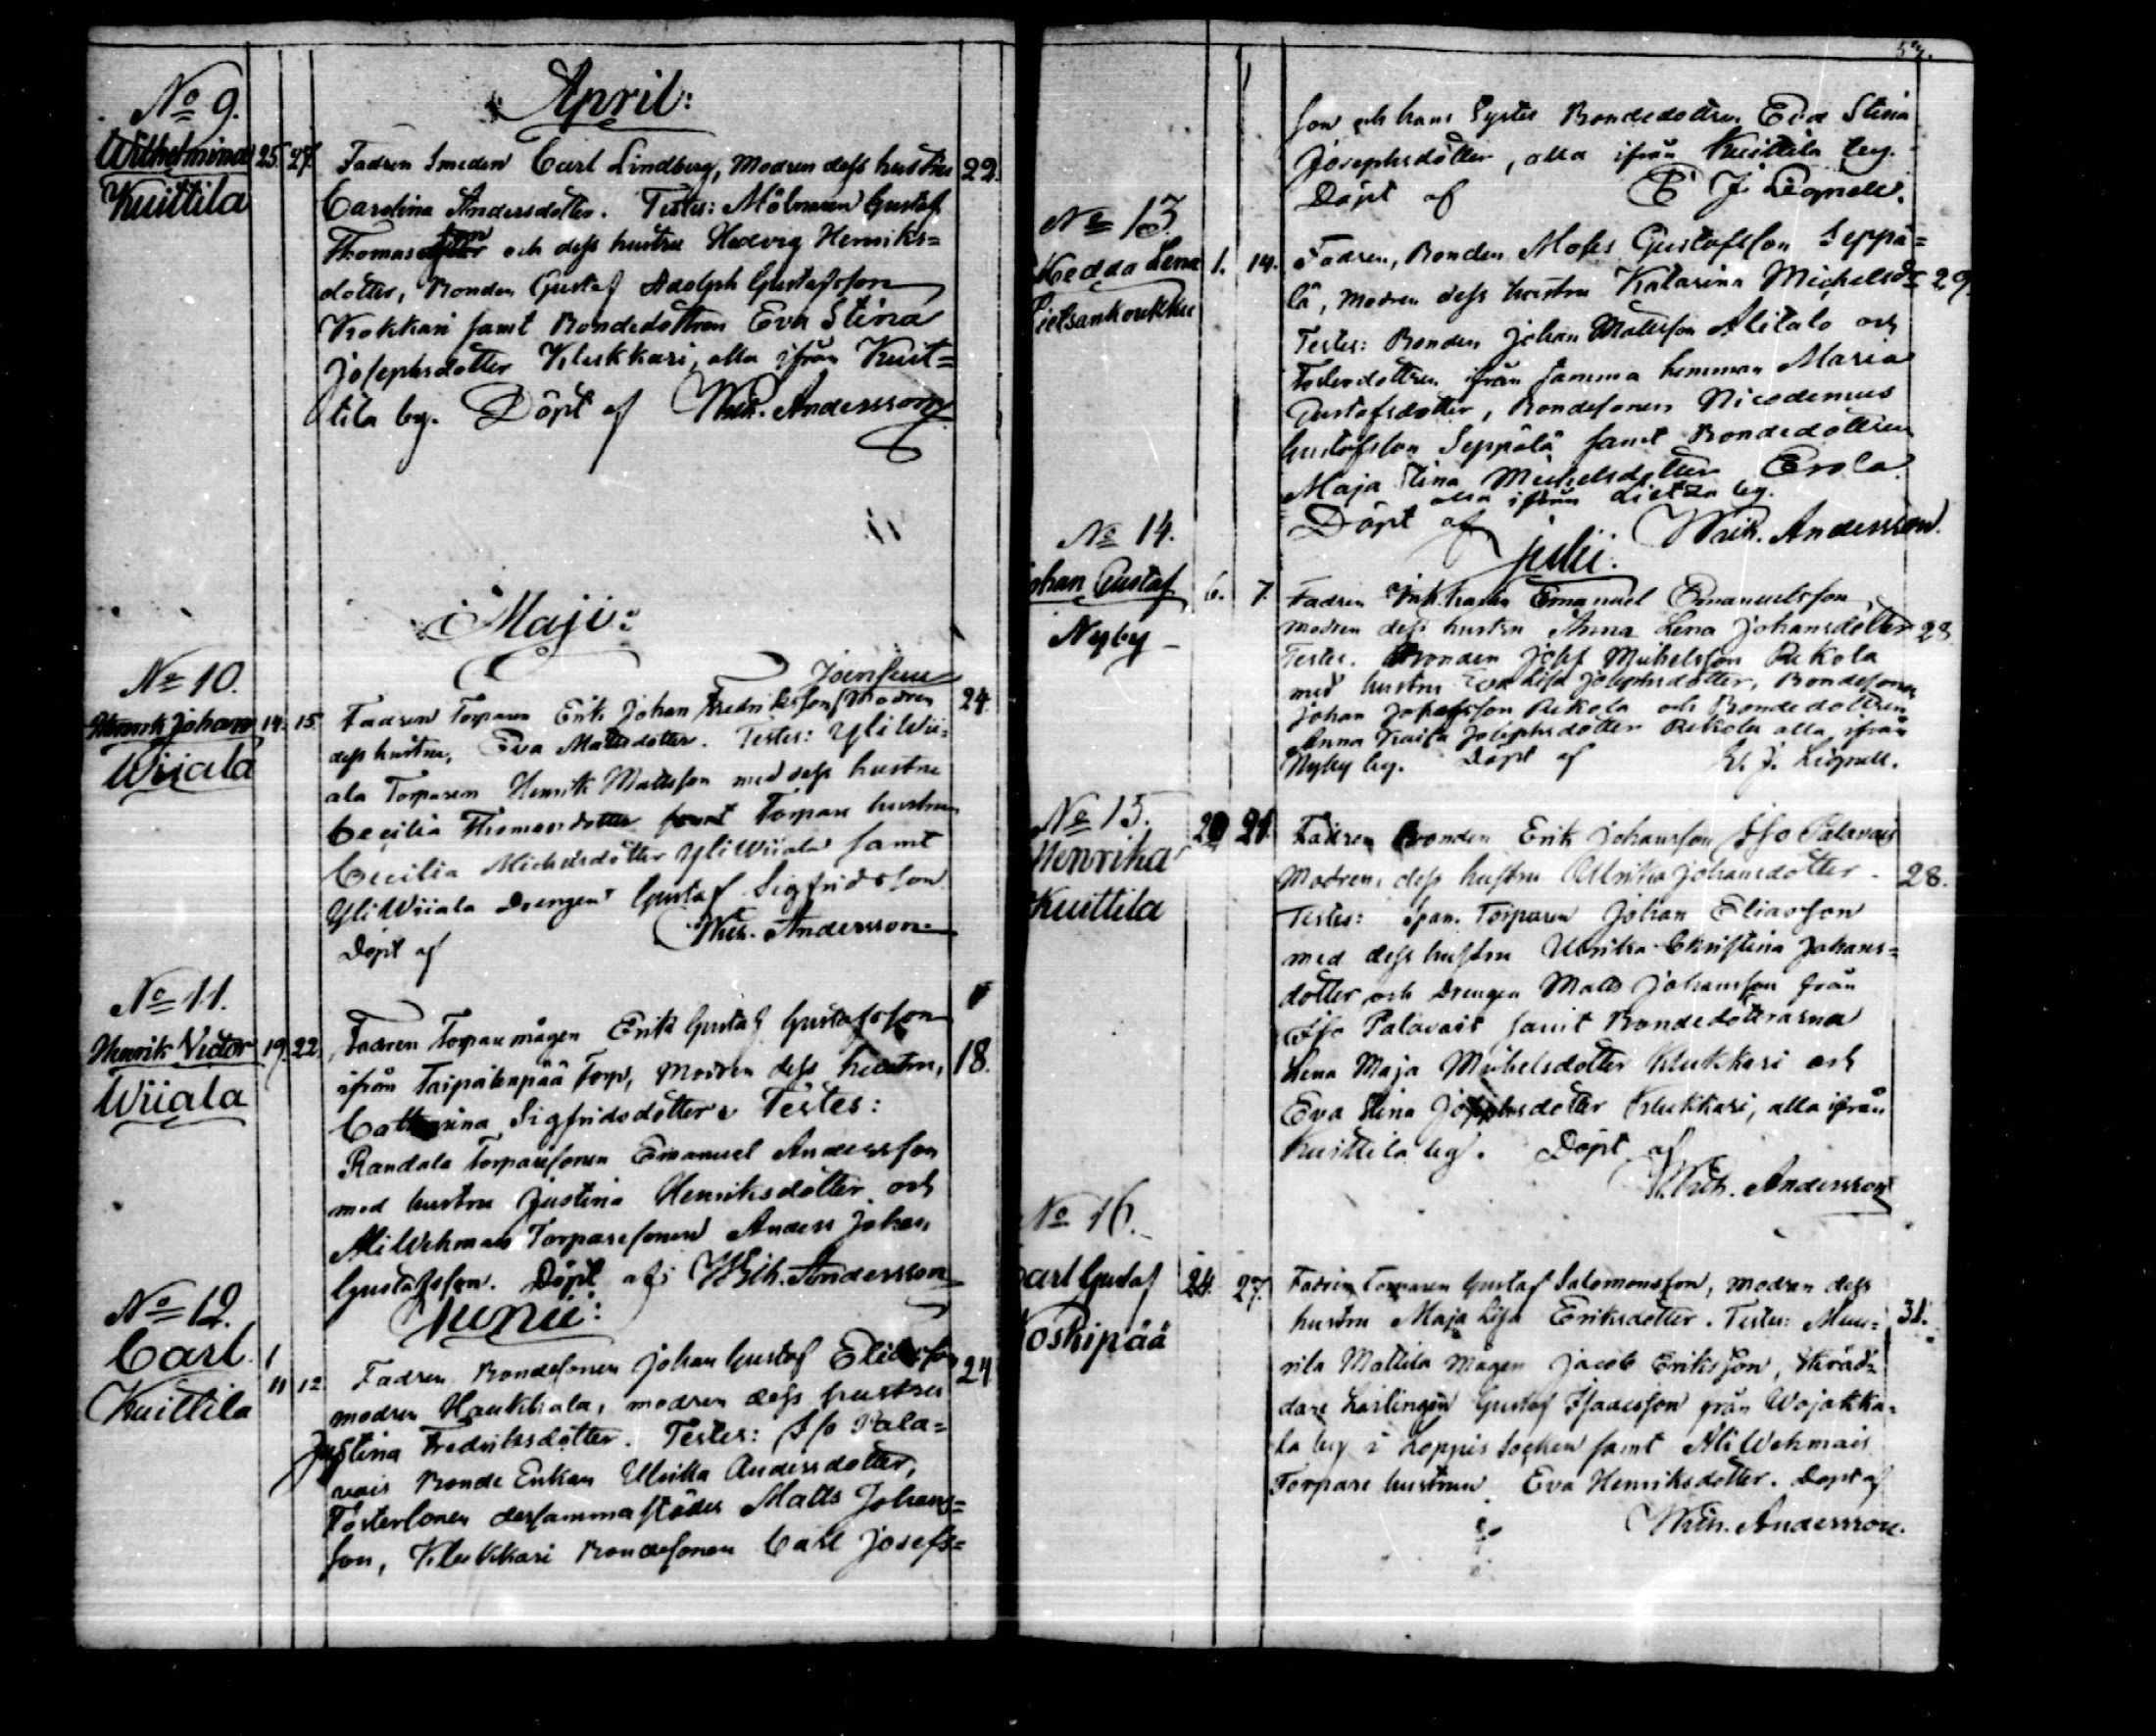 April:
No 9.
Wilhelmina 25. 27. Fadren Smeden Carl Lindberg, Modren dess hustru 22.
Kuittila Carolina Andersdotter. Testes: Mölnaren Gustaf
Thomasson och dess hustru Hedvig Henriks=
dotter, Bonden Gustaf Adolph Gustafsson
Krokkari samt Bondedottren Eva Stina
Josephsdotter Klukkari, alla ifrån Kuit=
tila by. Döpt af Wilh. Andersson
Maji:
No 10. Joensuu
Henrik Johan 14. 15. Fadren Torparen Erik Johan Fredriksson Modren 24.
Wiiala dess hustru, Eva Mattsdotter. Testes: Yli Wii=
ala Torparen Henrik Mattsson med dess hustru
Cecilia Thomasdotter samt Torpare hustrun
Cecilia Michelsdotter Yli Wiiala samt
Yli Wiiala Drengen Gustaf Sigfridsson
Döpt af Wilh. Andersson
No 11.
Henrik Victor 19. 22. Fadren Torparemågen Erik Gustaf Gustafsson
Wiiala ifrån Taipalenpää Torp, Modren dess hustru, 18.
Catharina Sigfridsdotter Testes:
Randala Torparesonen Emanuel Andersson
med hustru Justina Henriksdotter och
Ali Wehmais Torparesonen Anders Johan
Gustafsson. Döpt af: Wilh. Andersson
Junii:
No 12.
Carl 11 12 Fadren Bondesonen Johan Gustaf Eliasson 24
Kuittila modren Haukkala, modren dess hustru
Justina Fredriksdotter. Testes: Iso Pala=
vais Bonde Enkan Ulrika Andersdotter,
Fostersonen dersammastädes Matts Johans=
son, Klukkari Bondesonen Carl Josefs=
57.
son och hans Syster Bondedottren Eva Stina
Josephsdotter, alla ifrån Kuittila by.
Döpt af J. Lignell.
No 13.
Hedda Lena 1. 14. Fadren, Bonden Moses Gustafsson Seppä=
Lietsankoukku lä, Modren dess hustru Katarina Michelsdr 29.
Testes: Bonden Johan Mattsson Alitalo och
Fosterdottren ifrån samma hemman Maria
Gustafsdotter, Bondesonen Nicodemus
Gustafsson Seppälä samt Bondedottren
Maja Stina Michelsdotter Erola
alla ifrån Lietsa by.
Döpt af Wilh. Andersson.
Julii.
No 14.
Johan Gustaf 6. 7. Fadren Emanuel Emanuelsson,
Nyby modren dess hustru Anna Lena Johansdotter 28
Testes. Bonden Josef Michelsson Rekola
med hustru Eva Lisa Josephsdotter, Bondesonen
Johan Josefsson Rekola och Bondedottren
Anna Kaisa Josephsdotter Rekola alla ifrån
Nyby by. Döpt af J. Lignell.
No 15. 20 21. Fadren Bonden Erik Johansson Iso Palavais
Henrika Modren, dess hustru Ulrika Johansdotter. 28.
Kuittila Testes: Torparen Johan Eliasson
med dess hustru Ulrika Christina Johans=
dotter och Drengen Matts Johansson från
Iso Palavais samt Bondedöttrarna
Lena Maja Michelsdotter Klukkari och
Eva Stina Josephsdotter Klukkari, alla ifrån
Kuittila by. Döpt af
Wilh. Andersson
No 16.
Carl Gustaf 24. 27. Fadren Torparen Gustaf Salomonsson, modren dess
Koskipää hustru Maja Lisa Eriksdotter. Testes: Muu= 31.
rila Mattila Mågen Jacob Eriksson, Skräd=
dare Lärlingen Gustaf Isacsson från Wojakka=
la by i Loppis Socken samt Ali Wehmais
Torpare hustrun Eva Henriksdotter. Döpt af
Wilh. Andersson.